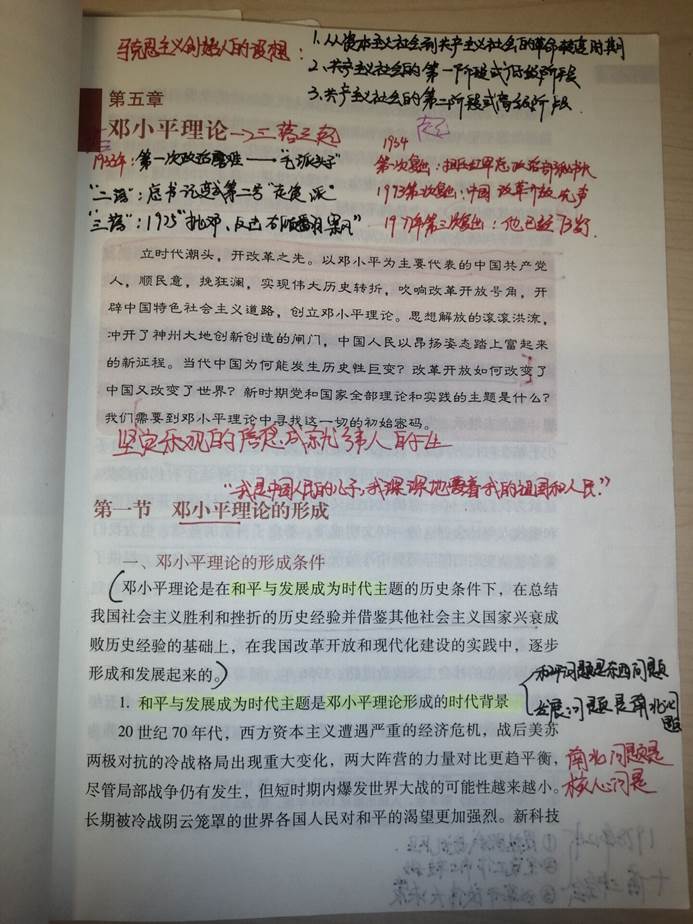 马克思主义创始人的设想：
1.从资本主义社会到共产主义社会的革命转变时期
2.共产主义社会的第一阶段或低级阶段
3.共产主义社会的第二阶段或高级阶段
第五章
邓小平理论→三落三起
起
1933年：第一次政治磨难——“毛派头子”
1934
第一次复出：担任红军总政治部秘书长
“二落”：总书记变成第二号“走资派”
1973第二次复出：中国改革开放先声
“三落”：1975“批邓、反击右倾翻案风”
1977年第三次复出：他已经73岁
立时代潮头，开改革之先。以邓小平为主要代表的中国共产党
人，顺民意，挽狂澜，实现伟大历史转折，吹响改革开放号角，开
辟中国特色社会主义道路，创立邓小平理论。思想解放的滚滚洪流，
冲开了神州大地创新创造的闸门，中国人民以昂扬姿态踏上富起来
的新征程。当代中国为何能发生历史性巨变？改革开放如何改变了
中国又改变了世界？新时期党和国家全部理论和实践的主题是什么？
我们需要到邓小平理论中寻找这一切的初始密码。
坚定乐观的信念，成就伟人的一生
“我是中国人民的儿子，我深深地爱着我的祖国和人民。”
第一节　邓小平理论的形成
一、邓小平理论的形成条件
邓小平理论是在和平与发展成为时代主题的历史条件下，在总结
我国社会主义胜利和挫折的历史经验并借鉴其他社会主义国家兴衰成
败历史经验的基础上，在我国改革开放和现代化建设的实践中，逐步
形成和发展起来的。
和平问题是东西问题
发展问题是南北问题
1. 和平与发展成为时代主题是邓小平理论形成的时代背景
20 世纪 70 年代，西方资本主义遭遇严重的经济危机，战后美苏
两极对抗的冷战格局出现重大变化，两大阵营的力量对比更趋平衡，
南北问题是
核心问题
尽管局部战争仍有发生，但短时期内爆发世界大战的可能性越来越小。
长期被冷战阴云笼罩的世界各国人民对和平的渴望更加强烈。新科技